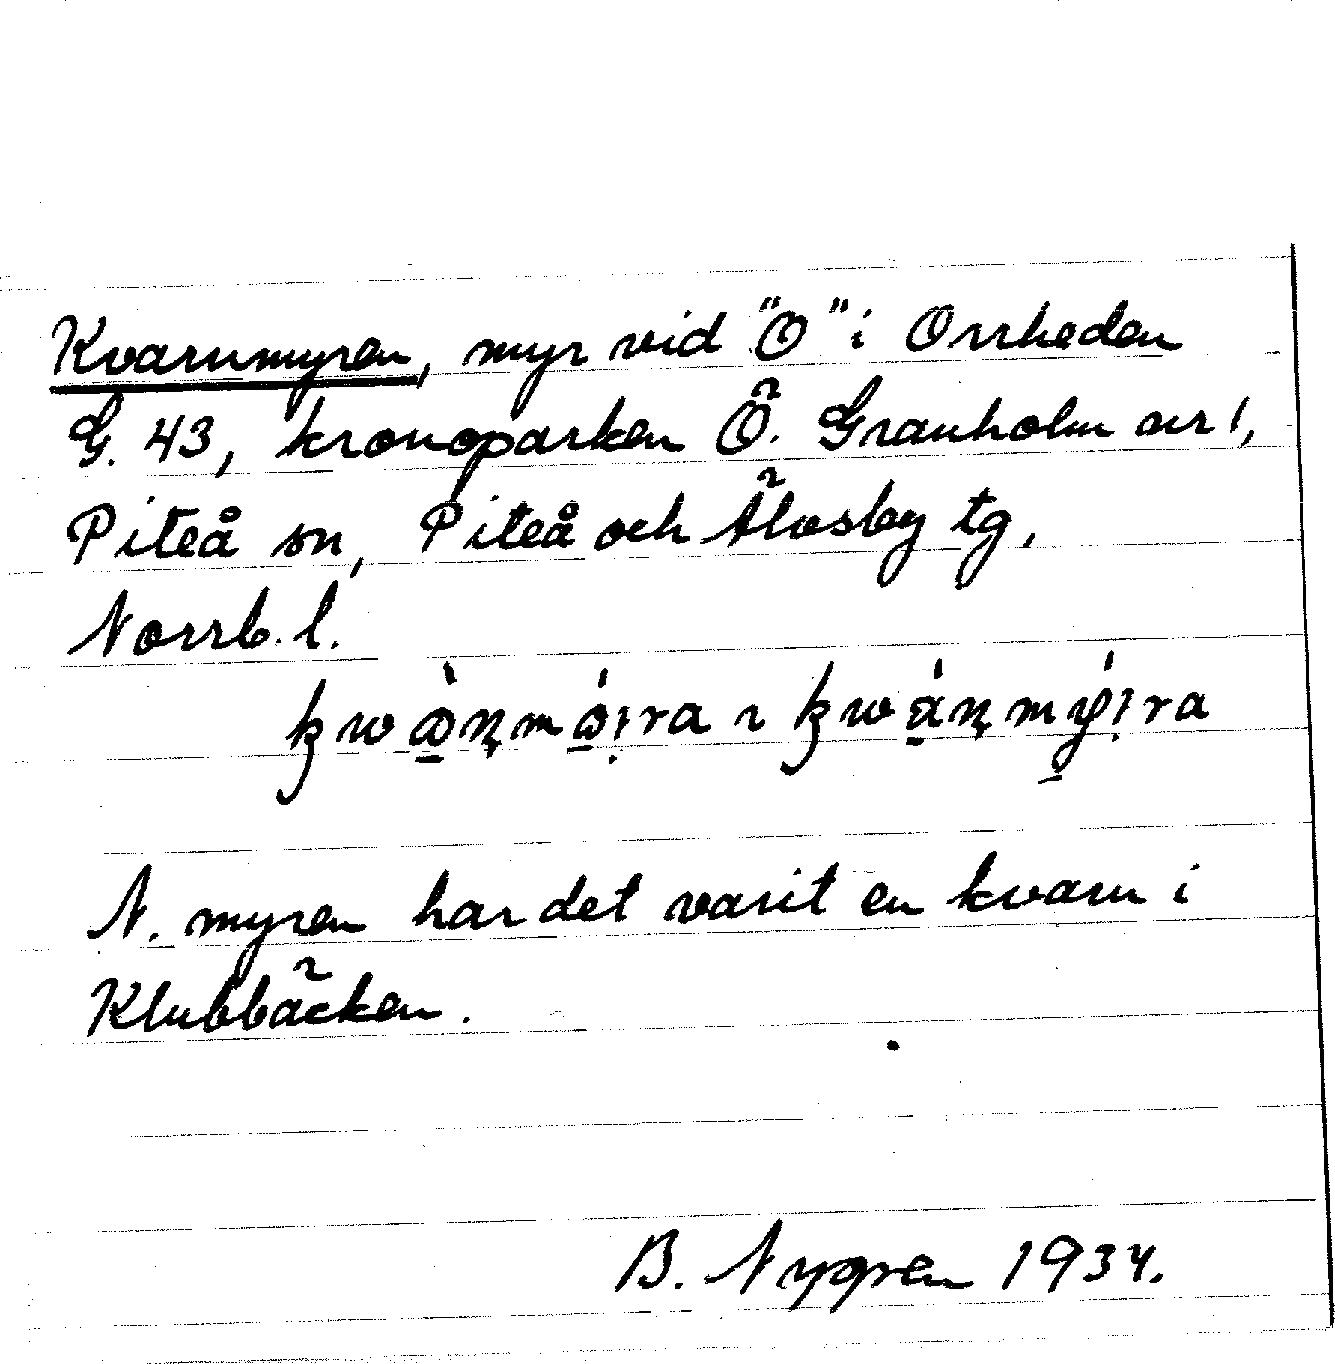 Kvarnmyren, myr vid "O" i Orrheden
G. 43, kronoparken Ö. Granholm nr 1,
Piteå sn, Piteå och Älvsby tg,
Norrb. l.
N. myren har det varit en kvarn i
Klubbäcken.
B. Nygren 1934.